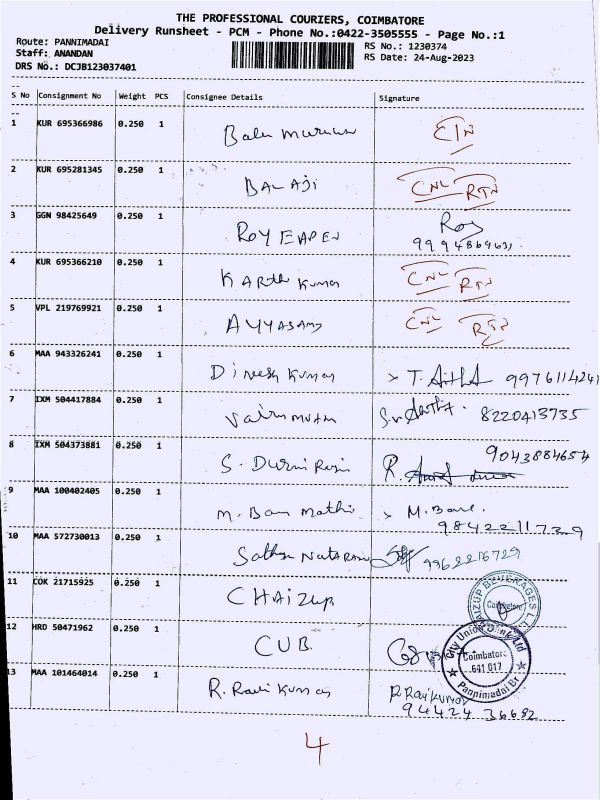 THE PROFESSIONAL COURIERS, COIMBATORE
Delivery Runsheet - PCM - Phone No.:0422-3505555 - Page No.:1
Route: PANNIMADAI
RS No.: 1230374
Staff: ANANDAN
RS Date: 24-Aug-2023
DRS No.: DCJB123037401
S No Consignment No Weight PCS Consignee Details Signature
1 KUR 695366986 0.250 1
2 KUR 695281345 0.250 1 BALAJI CNL RTN
3 GGN 98425649 0.250 1 ROY EAPEN Roy
4 KUR 695366210 0.250 1 Karthi Kumar CNL RTN
5 VPL 219769921 0.250 1 AYYASAMY CNL RTN
6 MAA 943326241 0.250 1 Dinesh Kumar
7 IXM 504417884 0.250 1 8220413735
8 IXM 504373881 0.250 1 9043884654
9 MAA 100402405 0.250 1 9842211739
10 MAA 572730013 0.250 1 9962216729
11 COK 21715925 0.250 1 CHAizup
Coimbatore
12 HRD 50471962 0.250 1 CUB
City Union Bank Ltd
Coimbatore
641 017
Pannimadai Br
13 MAA 101464014 0.250 1 R. Ravi Kumar R. Ravikumar
94424 36682
4